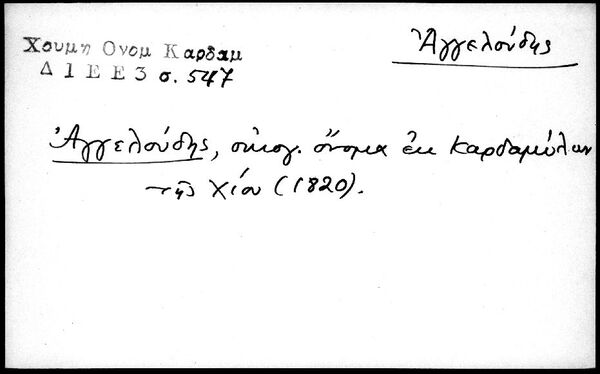 Χουμη Ονομ Καρδαμ
Δ 1 Ε Ε 3 σ. 547
Ἀγγελούδης
Ἀγγελούδης, οἰκογ. ὄνομα ἐκ Καρδαμύλων
τῆς Χίου (1820).